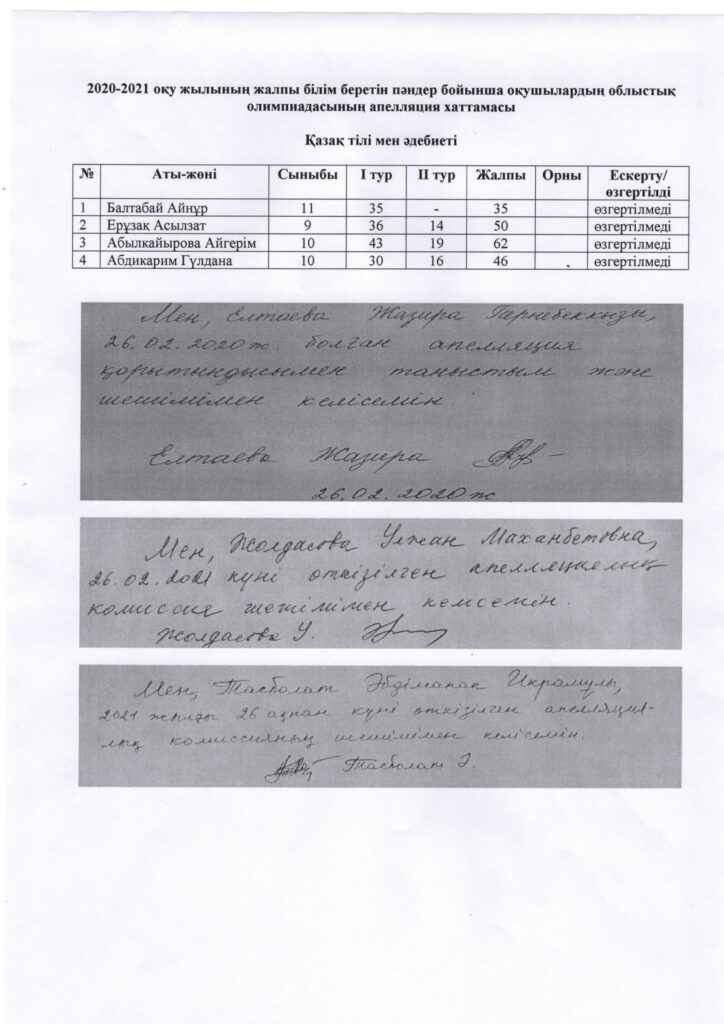 2020-2021 оқу жылының жалпы білім беретін пәндер бойынша оқушылардың облыстық
олимпиадасының апелляция хаттамасы
Қазақ тілі мен әдебиеті
№ Аты-жөні Сыныбы I тур II тур Жалпы Орны Ескерту/
өзгертілді
1 Балтабай Айнұр 11 35 - 35 өзгертілмеді
2 Ерұзақ Асылзат 9 36 14 50 өзгертілмеді
3 Абылкайырова Айгерім 10 43 19 62 өзгертілмеді
4 Абдикарим Гүлдана 10 30 16 46 өзгертілмеді
Мен, Елтаева Жазира
26.02.2020ж. болған апелляция
қорытындысымен таныстым және
шешімімен келісемін.
Елтаева Жазира
26.02.2020ж
Мен, Жолдасова Улжан Маханбетовна,
26.02.2021 күні өткізілген апелляциялық
комиссия шешімімен келісемін.
Жолдасова У.
Мен, Тасболат Әбдіманап Икрамұлы,
2021 жылғы 26 ақпан күні өткізілген апелляция-
лық комиссияның шешімімен келісемін.
Тасболат Ә.